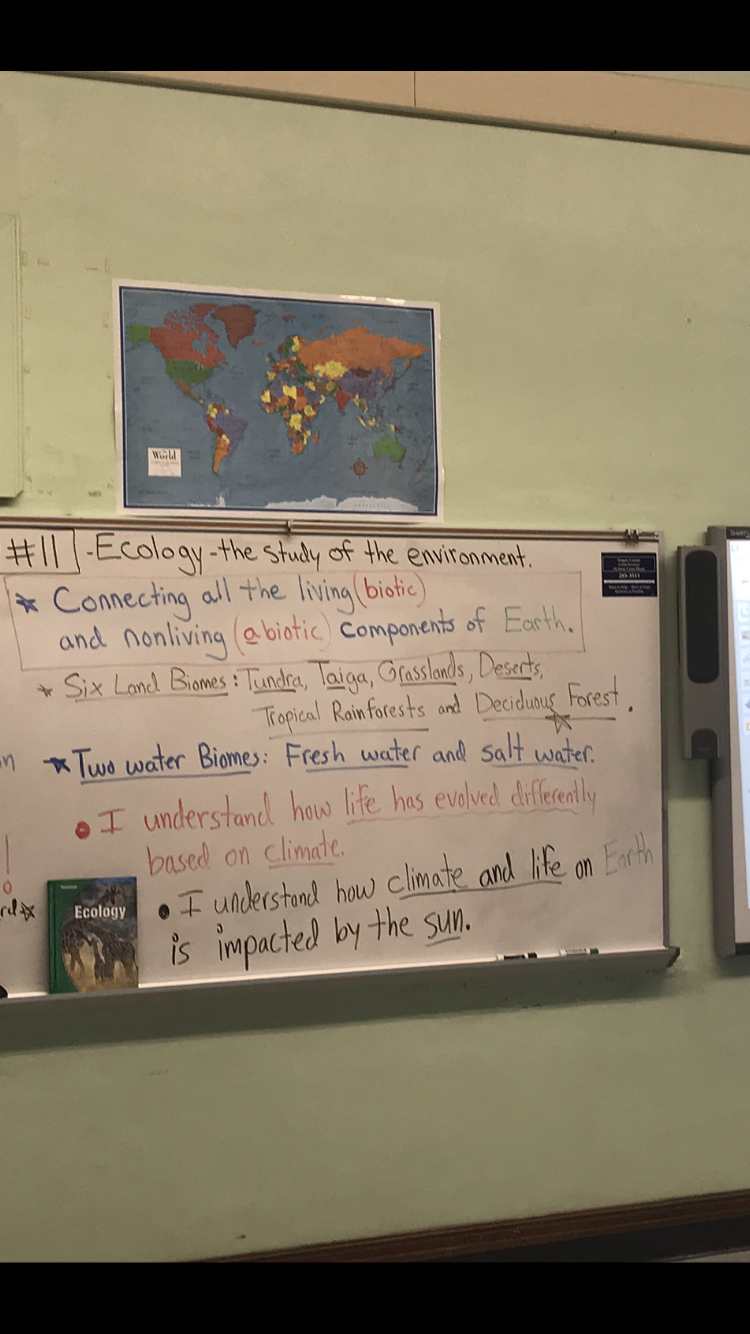 The World
#11 - Ecology - the study of the environment.
★ Connecting all the living (biotic)
and nonliving (abiotic) components of Earth.
★ Six Land Biomes: Tundra, Taiga, Grasslands, Deserts,
Tropical Rainforests and Deciduous Forest.
★ Two water Biomes: Fresh water and salt water.
• I understand how life has evolved differently
based on climate.
• I understand how climate and life on Earth
is impacted by the sun.
Ecology